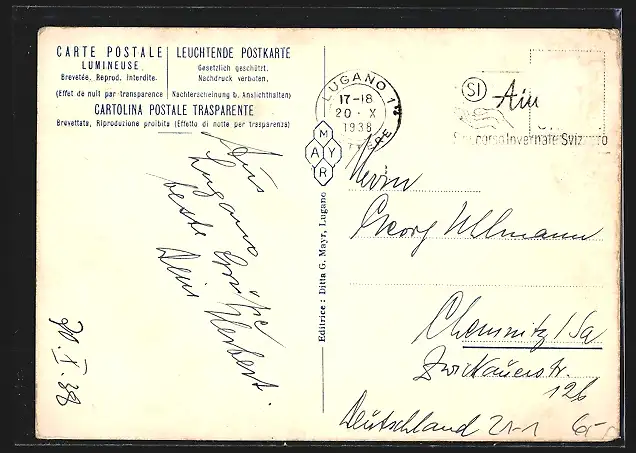 CARTE POSTALE
LUMINEUSE
Brevetée, Reprod. Interdite.
(Effet de nuit par transparence
LEUCHTENDE POSTKARTE
Gesetzlich geschützt.
Nachdruck verboten.
Nachterscheinung b. Ansichthalten)
CARTOLINA POSTALE TRASPARENTE
Brevettata, Riproduzione proibita (Effetto di notte per trasparenza)
LUGANO 1
17-18
20 · X
1938
SI
Soccorso Invernale Svizzero
MAYR
Editrice: Ditta G. Mayr, Lugano
Aus
Lugano
beste Grüße
Dein Herbert.
20. X. 38
Herrn
Georg Ullmann
Chemnitz/Sa
Zwickauerstr.
126
Deutschland
21-1
6,-